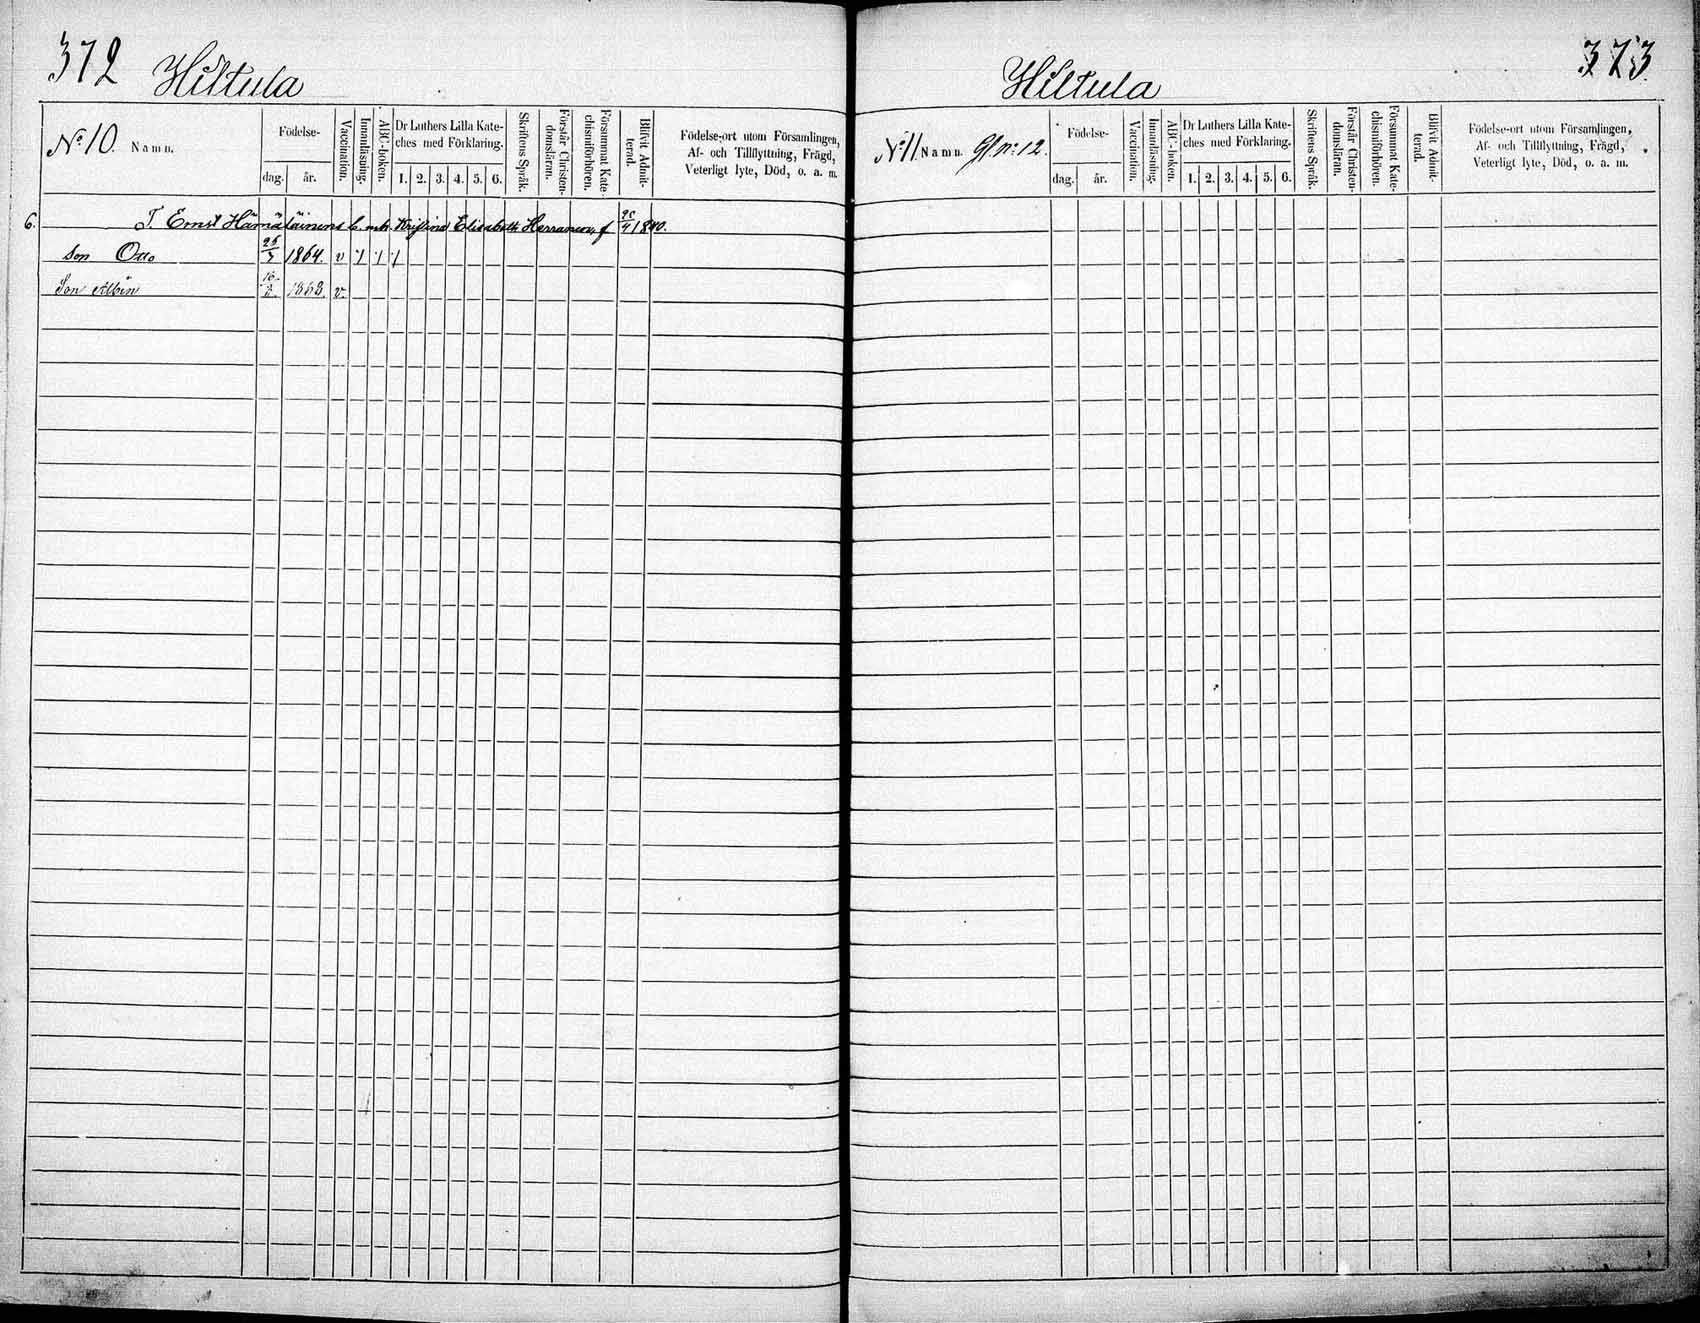 372 Hiltula
No 10. Namn.
Födelse-
dag. år.
Vaccination.
Innanläsning.
ABC-boken.
Dr Luthers Lilla Kate-
ches med Förklaring.
1. 2. 3. 4. 5. 6.
Skriftens Språk.
Förstår Christen-
domsläran.
Försummat Kate-
chismiförhören.
Blifvit Admit-
terad.
Födelse-ort utom Församlingen,
Af- och Tillflyttning, Frägd,
Veterligt lyte, Död, o. a. m.
6. T. Ernst Hämäläinens Kristina Elisabeth Herranen, f 1840.
son Otto 1864. v
Son Albin 16 1868. v.
Hiltula 373
No 11. Namn. No 12.
Födelse-
dag. år.
Vaccination.
Innanläsning.
ABC-boken.
Dr Luthers Lilla Kate-
ches med Förklaring.
1. 2. 3. 4. 5. 6.
Skriftens Språk.
Förstår Christen-
domsläran.
Försummat Kate-
chismiförhören.
Blifvit Admit-
terad.
Födelse-ort utom Församlingen,
Af- och Tillflyttning, Frägd,
Veterligt lyte, Död, o. a. m.